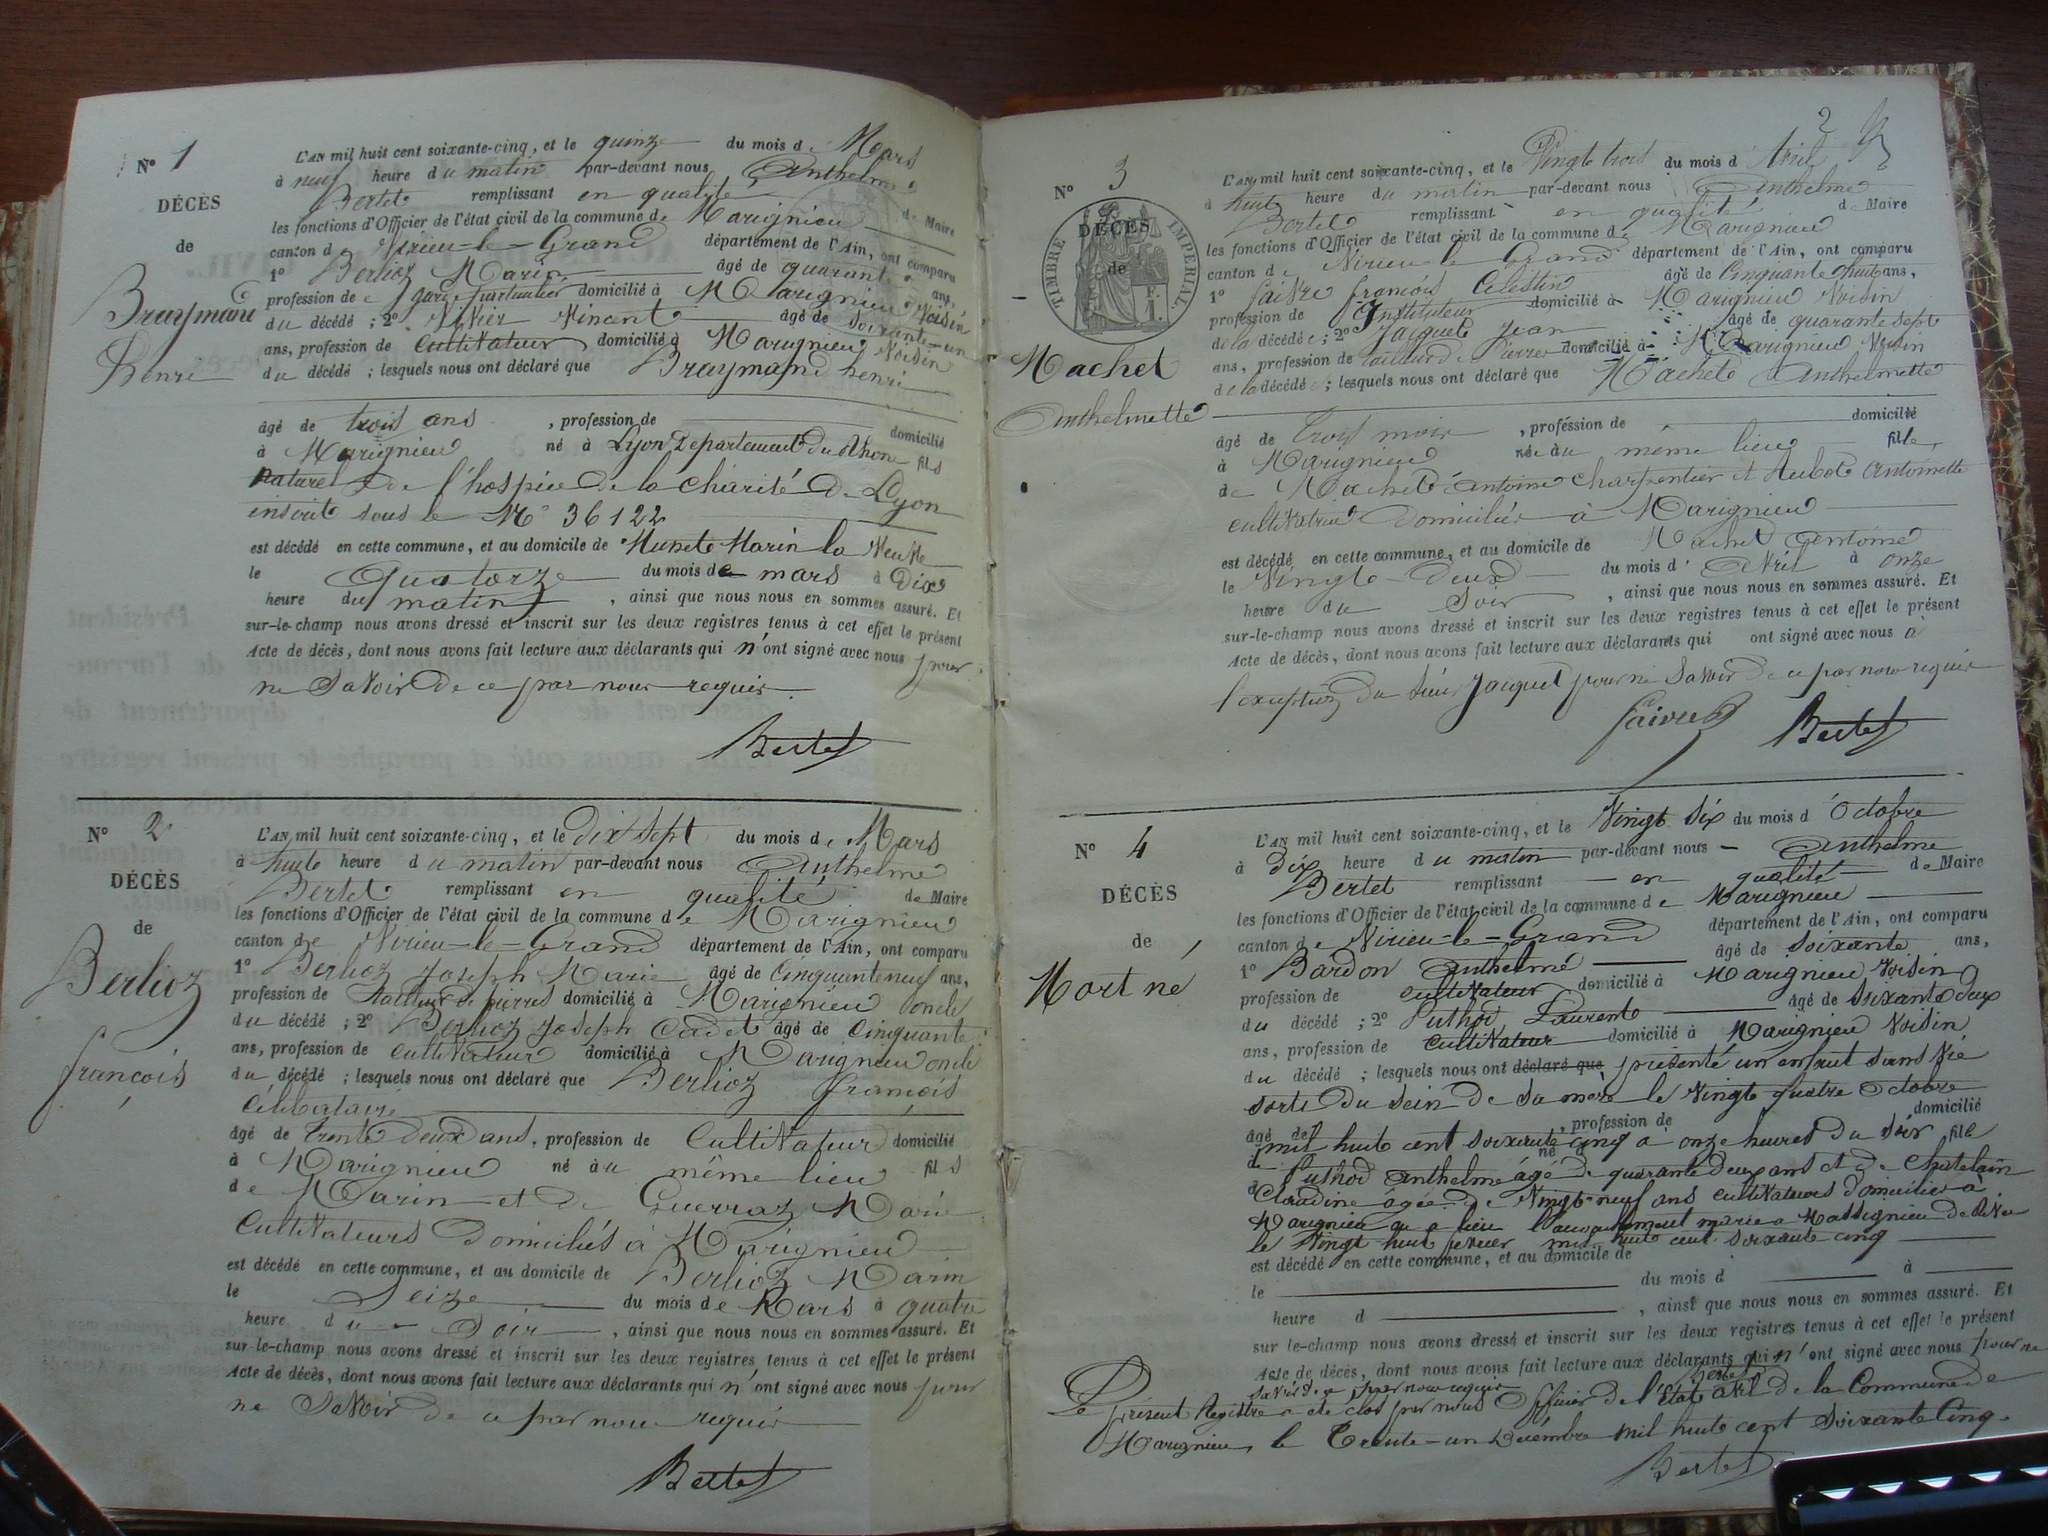 N° 1
DÉCÈS
de
Braymand
henri
L'AN mil huit cent soixante-cinq, et le quinze du mois de Mars
à neuf heure du matin par-devant nous Anthelme
Bertet remplissant en qualité de Maire
les fonctions d'Officier de l'état civil de la commune de Marignieu
canton de Virieu-le-Grand département de l'Ain, ont comparu
1° Berlioz Marin âgé de quarante ans,
profession de garde particulier domicilié à Marignieu Voisin
du décédé ; 2° Vincent âgé de soixante-un
ans, profession de Cultivateur domicilié à Marignieu Voisin
du décédé ; lesquels nous ont déclaré que Braymand henri
âgé de trois ans , profession de domicilié
à Marignieu né à Lyon Département du Rhone fils
naturel de l'hospice de la Charité de Lyon
inscrit sous le N° 36122
est décédé en cette commune, et au domicile de Munet Marin la Veuve
le Quatorze du mois de mars à Dix
heure du matin , ainsi que nous nous en sommes assuré. Et
sur-le-champ nous avons dressé et inscrit sur les deux registres tenus à cet effet le présent
Acte de décès, dont nous avons fait lecture aux déclarants qui n'ont signé avec nous pour
ne Savoir de ce par nous requis
Bertet
N° 2
DÉCÈS
de
Berlioz
françois
L'AN mil huit cent soixante-cinq, et le dix sept du mois de Mars
à huit heure du matin par-devant nous Anthelme
Bertet remplissant en qualité de Maire
les fonctions d'Officier de l'état civil de la commune de Marignieu
canton de Virieu-le-Grand département de l'Ain, ont comparu
1° Berlioz Joseph Marie âgé de Cinquante neuf ans,
profession de tailleur de pierres domicilié à Marignieu oncle
du décédé ; 2° Berlioz Joseph Cadet âgé de Cinquante
ans, profession de Cultivateur domicilié à Marignieu oncle
du décédé ; lesquels nous ont déclaré que Berlioz françois
Célibataire
âgé de trente deux ans, profession de Cultivateur domicilié
à Marignieu né au même lieu fils
de Marin et de Guerraz Marie
Cultivateurs domiciliés à Marignieu
est décédé en cette commune, et au domicile de Berlioz Marin
le Seize du mois de Mars à quatre
heure du Soir , ainsi que nous nous en sommes assuré. Et
sur-le-champ nous avons dressé et inscrit sur les deux registres tenus à cet effet le présent
Acte de décès, dont nous avons fait lecture aux déclarants qui n'ont signé avec nous pour
ne Savoir de ce par nous requis
Bertet
2
N° 3
DÉCÈS
de
TIMBRE IMPÉRIAL
Machet
Anthelmette
L'AN mil huit cent soixante-cinq, et le Vingt trois du mois d'Avril
à huit heure du matin par-devant nous Anthelme
Bertet remplissant en qualité de Maire
les fonctions d'Officier de l'état civil de la commune de Marignieu
canton de Virieu le Grand département de l'Ain, ont comparu
1° faivre françois Célestin âgé de Cinquante huit ans,
profession de Instituteur domicilié à Marignieu Voisin
de la décédée ; 2° Jacquet Jean âgé de quarante sept
ans, profession de tailleur de Pierres domicilié à Marignieu Voisin
de la décédée ; lesquels nous ont déclaré que Machet Anthelmette
âgé de trois mois , profession de domicilié
à Marignieu née au même lieu fille
de Machet Antoine Charpentier et Antoinette
cultivatrice domiciliés à Marignieu
est décédé en cette commune, et au domicile de Machet Antoine
le Vingt-Deux du mois d'Avril à onze
heure du Soir , ainsi que nous nous en sommes assuré. Et
sur-le-champ nous avons dressé et inscrit sur les deux registres tenus à cet effet le présent
Acte de décès, dont nous avons fait lecture aux déclarants qui ont signé avec nous à
l'exception du Sieur Jacquet pour ne Savoir de ce par nous requis
faivre Bertet
N° 4
DÉCÈS
de
Mort né
L'AN mil huit cent soixante-cinq, et le Vingt Six du mois d'Octobre
à Dix heure du matin par-devant nous Anthelme
Bertet remplissant en qualité de Maire
les fonctions d'Officier de l'état civil de la commune de Marignieu
canton de Virieu-le-Grand département de l'Ain, ont comparu
1° Bardon Anthelme âgé de Soixante ans,
profession de Cultivateur domicilié à Marignieu Voisin
du décédé ; 2° Puthod Laurent âgé de Soixante deux
ans, profession de Cultivateur domicilié à Marignieu Voisin
du décédé ; lesquels nous ont déclaré que présenté un enfant sans Vie
sorti du sein de Sa mère le Vingt quatre Octobre
âgé de , profession de domicilié
mil huit cent soixante cinq à onze heures du soir fils
de Puthod Anthelme âgé de quarante deux ans et de Chatelain
Claudine âgée de Vingt-neuf ans cultivateurs domiciliés à
Marignieu où a lieu l'accouchement mariés à Massignieu de Rives
le Vingt huit mil huit cent soixante cinq
est décédé en cette commune, et au domicile de
le du mois d à
heure d , ainsi que nous nous en sommes assuré. Et
sur le-champ nous avons dressé et inscrit sur les deux registres tenus à cet effet le présent
Acte de décès, dont nous avons fait lecture aux déclarants qui n'ont signé avec nous pour ne
savoir de ce par nous requis Bertet
Le présent Registre a été clos par nous Officier de l'État civil de la Commune de
Marignieu, le Trente-un Décembre mil huit cent Soixante Cinq.
Bertet